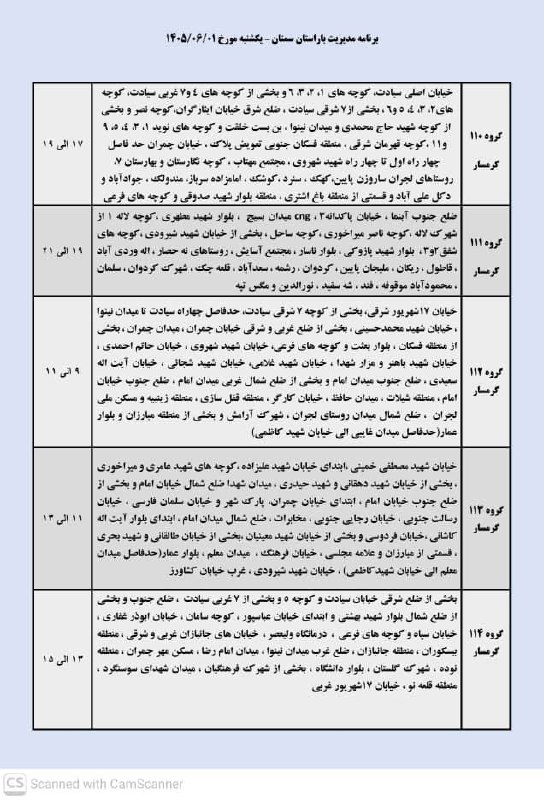 برنامه مدیریت باراستان سمنان - یکشنبه مورخ ۱۴۰۵/۰۶/۰۱
گروه ۱۱۰
گرمسار
خیابان اصلی سیادت، کوچه های ۱، ۲، ۳، ۶ و بخشی از کوچه های ۴ و۷ غربی سیادت، کوچه
های۲، ۳، ۴، ۵ و۶ ، بخشی از۷ شرقی سیادت ، ضلع شرق خیابان ایثارگران، کوچه نصر و بخشی
از کوچه شهید حاج محمدی و میدان نینوا ، بن بست خلقت و کوچه های نوید ۱، ۳، ۴، ۵، ۹
و۱۱ ،کوچه قهرمان شرقی ، منطقه فسکان جنوبی تعویض پلاک ، خیابان چمران حد فاصل
چهار راه اول تا چهار راه شهید شهروی ، مجتمع مهتاب ، کوچه نگارستان و بهارستان ۷،
روستاهای لجران ساروزن پایین،کهک ، سنرد ،کوشک ، امامزاده سرباز، مندولک ، جوادآباد و
دکل علی آباد و قسمتی از منطقه باغ اشتری ، منطقه بلوار شهید صدوقی و کوچه های فرعی
۱۷ الی ۱۹
گروه ۱۱۱
گرمسار
ضلع جنوب آبنما ، خیابان پاکدانه۲ ، cng میدان بسیج ، بلوار شهید مطهری ،کوچه لاله ۱ از
شهرک لاله ،کوچه ناصر میراخوری ،کوچه ساحل ، بخشی از خیابان شهید شیرودی ،کوچه های
شفق۲و۳، بلوار شهید پازوکی ، بلوار ناسار ، مجتمع آسایش ، روستاهای ده حصار ، اله وردی آباد
، فاطول ، ریکان ، ملیجان پایین ، کردوان ، رشمه ، سعدآباد ، قلعه جک ، شهرک کردوان ، سلمان
، محمودآباد موقوفه ، فند ، شه سفید ، نورالدین و مگس تپه
۱۹ الی ۲۱
گروه ۱۱۲
گرمسار
خیابان ۱۷شهریور شرقی، بخشی از کوچه ۷ شرقی سیادت، حدفاصل چهاراه سیادت تا میدان نینوا
، خیابان شهید محمدحسینی ، بخشی از ضلع غربی و شرقی خیابان چمران، میدان چمران ، بخشی
از منطقه فسکان ، بلوار بعثت و کوچه های فرعی، خیابان شهید شهروی ، خیابان حاتم احمدی ،
خیابان شهید باهنر و مزار شهدا ، خیابان شهید غلامی، خیابان شهید شجاثی ، خیابان آیت اله
سعیدی ، ضلع جنوب میدان امام و بخشی از ضلع شمال غربی میدان امام ، ضلع جنوب خیابان
امام ، منطقه شیلات ، میدان حافظ ، خیابان کارگر ، منطقه قفل سازی ، منطقه زینبیه و مسکن ملی
لجران ، ضلع شمال میدان روستای لجران ، شهرک آرامش و بخشی از منطقه مبارزان و بلوار
عمار(حدفاصل میدان غایبی الی خیابان شهید کاظمی)
۹ الی ۱۱
گروه ۱۱۳
گرمسار
خیابان شهید مصطفی خمینی ،ابتدای خیابان شهید علیزاده ،کوچه های شهید عامری و میراخوری
، بخشی از خیابان شهید دهقانی و شهید حیدری ، میدان شهدا ضلع شمال خیابان امام و بخشی از
ضلع جنوب خیابان امام ، ابتدای خیابان چمران، پارک شهر و خیابان سلمان فارسی ، خیابان
رسالت جنوبی ، خیابان رجایی جنوبی ، مخابرات ، ضلع شمال میدان امام ، ابتدای بلوار آیت اله
کاشانی ،خیابان فردوسی و بخشی از خیابان شهید معینیان ،بخشی از خیابان طالقانی و شهید بحری
، قسمتی از مبارزان و علامه مجلسی ، خیابان فرهنگ ، میدان معلم ، بلوار عمار(حدفاصل میدان
معلم الی خیابان شهیدکاظمی) ، خیابان شهید شیرودی ، غرب خیابان کشاورز
۱۱ الی ۱۳
گروه ۱۱۴
گرمسار
بخشی از ضلع شرقی خیابان سیادت و کوچه ۵ و بخشی از ۷ غربی سیادت ، ضلع جنوب و بخشی
از ضلع شمال بلوار شهید بهشتی و ابتدای خیابان عباسپور ، کوچه سامان ، خیابان ابوذر غفاری ،
خیابان سپاه و کوچه های فرعی ، درمانگاه ولیعصر ، خیابان های جانبازان غربی و شرقی ، منطقه
بیسکوران ، منطقه جانبازان ، ضلع غرب میدان نینوا ، میدان امام رضا ، مسکن مهر چمران ، منطقه
نوده ، شهرک گلستان ، بلوار دانشگاه ، بخشی از شهرک فرهنگیان ، میدان شهدای سوسنگرد ،
منطقه قلعه نو ، خیابان ۱۷شهریور غربی
۱۳ الی ۱۵
CS Scanned with CamScanner